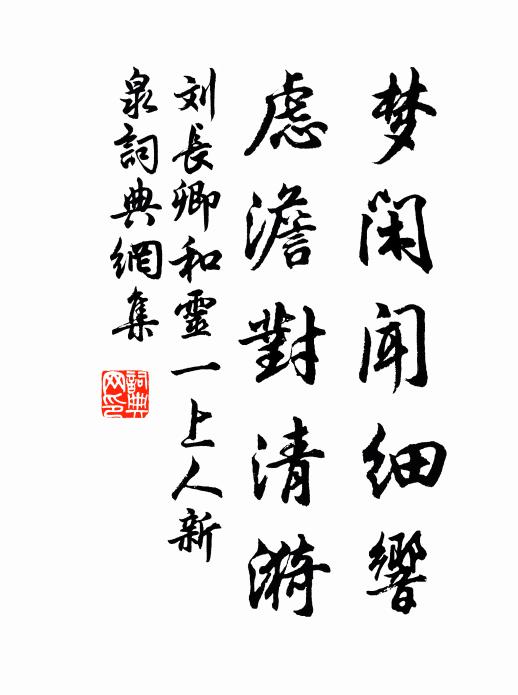 梦闲闻细響
虑澹對清漪
刘長卿和靈一上人新
泉詞典網集
詞典网印